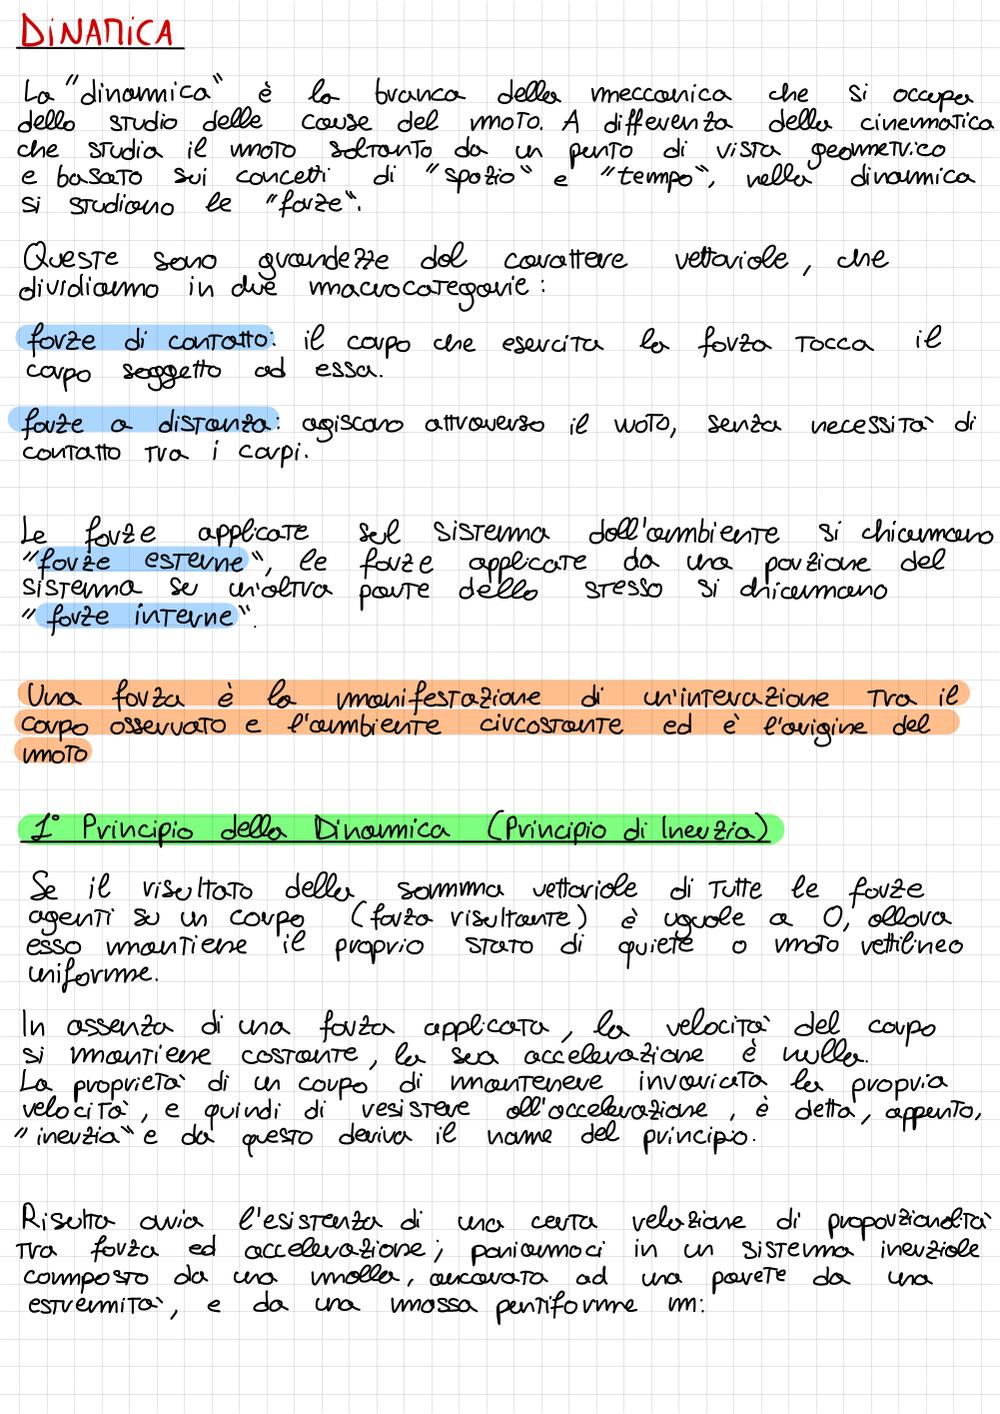 DINAMICA
La "dinamica" è la branca della meccanica che si occupa
dello studio delle cause del moto. A differenza della cinematica
che studia il moto soltanto da un punto di vista geometrico
e basato sui concetti di "spazio" e "tempo", nella dinamica
si studiano le "forze".
Queste sono grandezze dal carattere vettoriale, che
dividiamo in due macrocategorie:
forze di contatto: il corpo che esercita la forza tocca il
corpo soggetto ad essa.
forze a distanza: agiscono attraverso il vuoto, senza necessità di
contatto tra i corpi.
Le forze applicate sul sistema dall'ambiente si chiamano
"forze esterne", le forze applicate da una porzione del
sistema su un'altra parte dello stesso si chiamano
"forze interne".
Una forza è la manifestazione di un'interazione tra il
corpo osservato e l'ambiente circostante ed è l'origine del
moto
1° Principio della Dinamica (Principio di Inerzia)
Se il risultato della somma vettoriale di tutte le forze
agenti su un corpo (forza risultante) è uguale a 0, allora
esso mantiene il proprio stato di quiete o moto rettilineo
uniforme.
In assenza di una forza applicata, la velocità del corpo
si mantiene costante, la sua accelerazione è nulla.
La proprietà di un corpo di mantenere invariata la propria
velocità, e quindi di resistere all'accelerazione, è detta, appunto,
"inerzia" e da questo deriva il nome del principio.
Risulta ovvia l'esistenza di una certa relazione di proporzionalità
tra forza ed accelerazione; poniamoci in un sistema inerziale
composto da una molla, ancorata ad una parete da una
estremità, e da una massa puntiforme m: